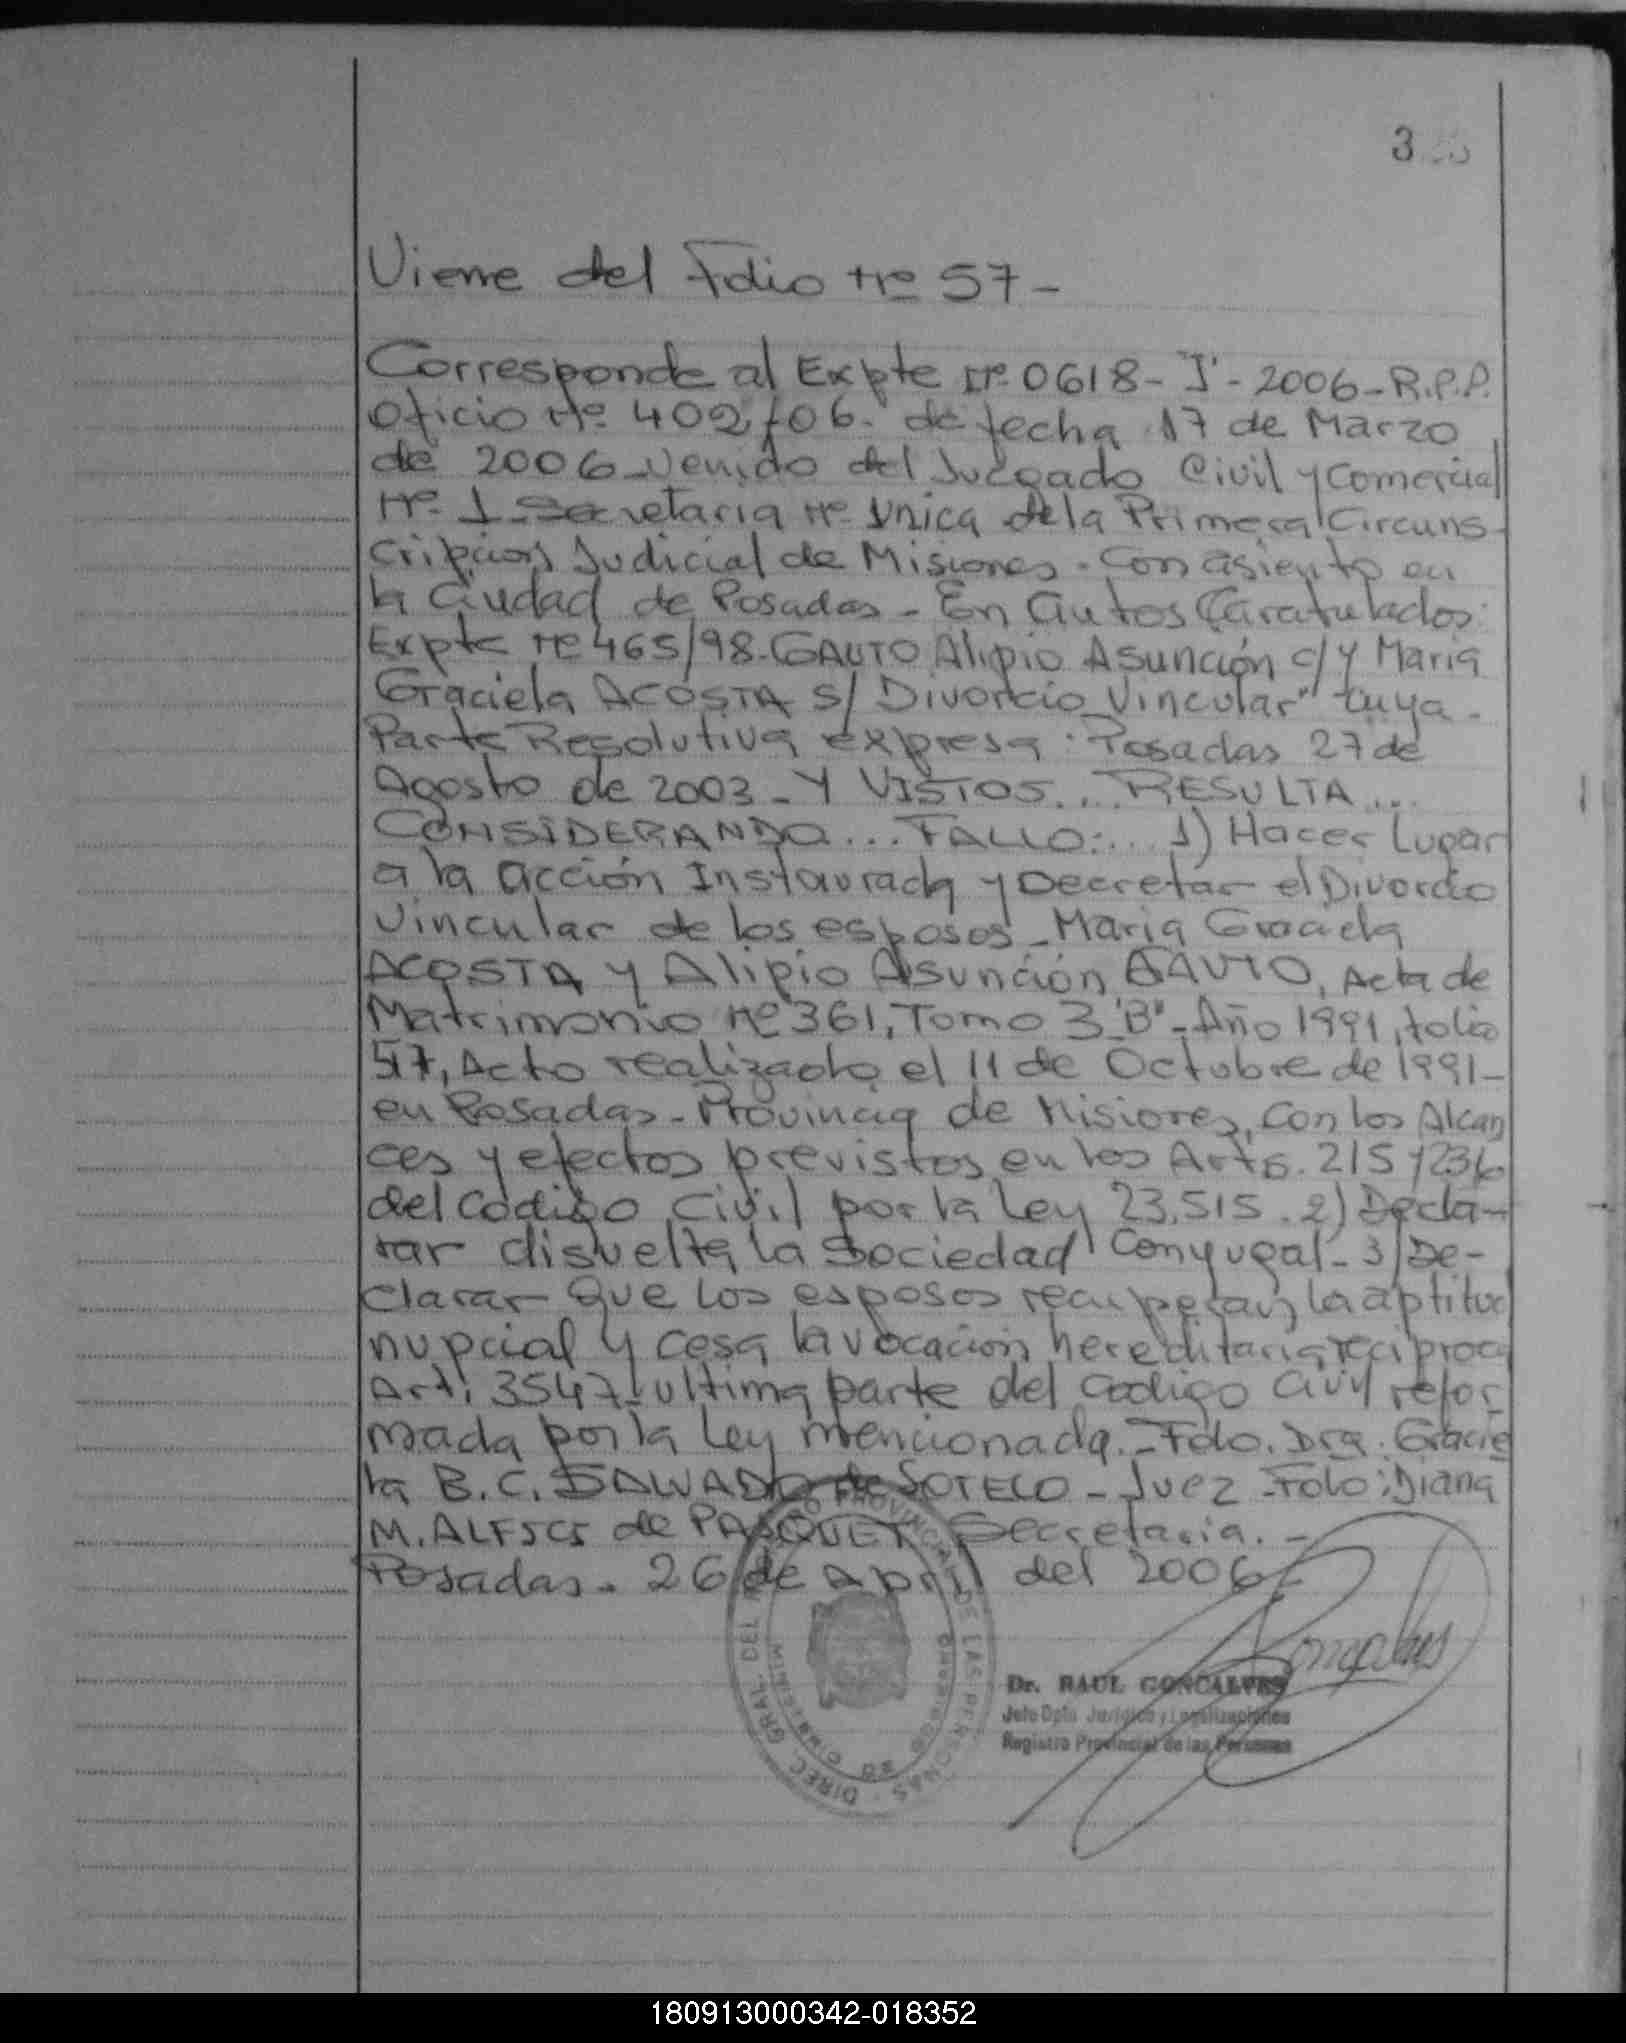 3
Viene del Folio Nº 57-
Corresponde al Expte Nº 0618-"J"-2006-R.P.P.
Oficio Nº 402/06. de fecha 17 de Marzo
de 2006-venido del Juzgado Civil y Comercial
Nº 1-Secretaria Nº Unica de la Primera Circuns-
cripcion Judicial de Misiones. Con asiento en
la Ciudad de Posadas-En autos Caratulados:
Expte Nº 465/98-GAUTO Alipio Asunción c/y Maria
Graciela ACOSTA S/ Divorcio Vincular" Cuya-
Parte Resolutiva expresa: Posadas 27 de
Agosto de 2003-Y VISTOS... RESULTA...
CONSIDERANDO... FALLO:... 1) Hacer Lugar
a la acción Instaurada y Decretar el Divorcio
Vincular de los esposos-Maria Graciela
ACOSTA y Alipio Asunción GAUTO, Acta de
Matrimonio Nº 361, Tomo 3-"B"-Año 1991, folio
57, Acto realizado el 11 de Octubre de 1991-
en Posadas-Provincia de Misiones, Con los Alcan
ces y efectos previstos en los Arts. 215 y 236
del Codigo Civil por la Ley 23.515. 2) Decla-
rar disuelta la Sociedad Conyugal-3) De-
clarar Que los esposos recuperan la aptitud
nupcial y cesa la vocación hereditaria reciproca
Art: 3547-ultima parte del Codigo Civil refor-
mada por la Ley mencionada.-Fdo. Dra. Gracie
la B.C. SALVADO de SOTELO-Juez-Fdo: Diana
M. ALFSCS de PASQUET Secretaria.-
Posadas-26 de Abril del 2006-
DIREC. GRAL. DEL REGISTRO PROVINCIAL DE LAS PERSONAS
MINISTERIO DE GOBIERNO
Goncalves
Dr. RAUL GONCALVES
Jefe Dpto Jurídico y Legalizaciones
Registro Provincial de las Personas
180913000342-018352